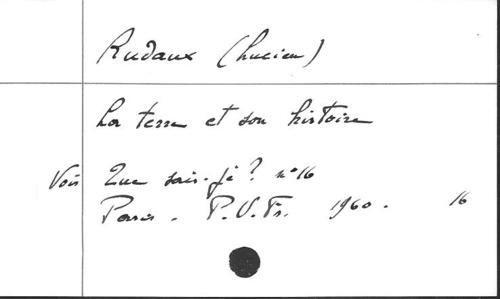 Rudaux (Lucien)
La terre et son histoire
Voir Que sais-je? n°16
Paris. P.U.Fr. 1960. 16